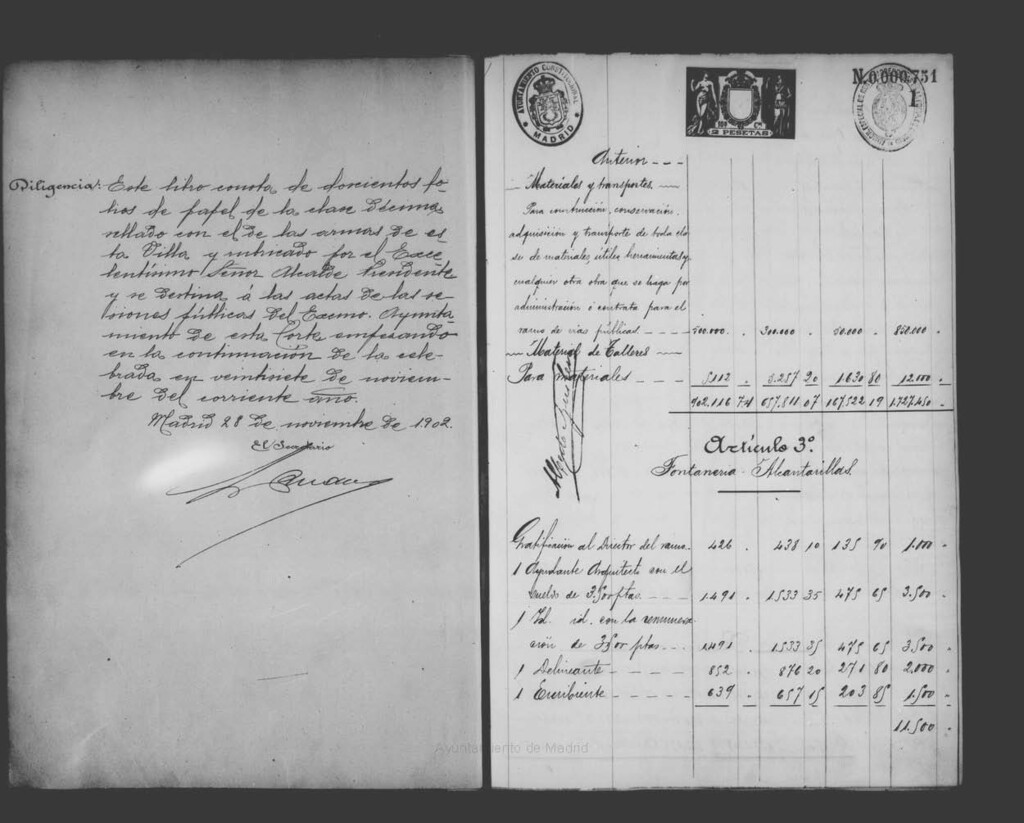 Diligencia: Este libro consta de doscientos fo-
lios de papel de la clase décima,
sellado con el de las armas de es-
ta Villa y rubricado por el Exce-
lentísimo Señor Alcalde Presidente
y se destina á las actas de las se-
siones públicas del Excmo. Ayunta-
miento de esta Corte empezando
en la continuación de la cele-
brada en veintisiete de noviem-
bre del corriente año.
Madrid 28 de noviembre de 1902.
El Secretario
AYUNTAMIENTO CONSTITUCIONAL
MADRID
2 PESETAS
N.0.000.751
1
Anterior - - -
Materiales y transportes.
Para construcción, conservación,
adquisición y transporte de toda cla
se de materiales, útiles, herramientas y
cualquier otra obra que se haga por
administración ó contrata para el
ramo de vías públicas - - - 500.000 . 300.000 . 50.000 . 850.000 .
Material de Talleres
Para materiales - - - 5.112 . 5.257 20 1.630 80 12.000 .
902.116 74 657.811 07 167.522 19 1.727.450 .
Artículo 3º
Fontanería - Alcantarillas
Gratificación al Director del ramo. 426 . 438 10 135 90 1.000 .
1 Ayudante Arquitecto con el
sueldo de 3.500 ptas. - - - 1.491 . 1.533 35 475 65 3.500 .
1 Id. id. con la remunera
ción de 3500 ptas. - - - 1.491 . 1.533 35 475 65 3.500 .
1 Delineante - - - - 852 . 876 20 271 80 2.000 .
1 Escribiente - - - - 639 . 657 15 203 85 1.500 .
11.500 .
Ayuntamiento de Madrid